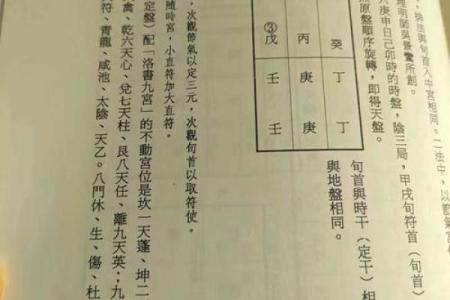 與旬首入中宮相同。二法中，以節氣
理明師吳景鸞所創。
庚申日己卯時的時盤，陰三局，甲戌旬符首（旬首）
原盤順序旋轉，即得天盤。
旬首與時干（定干）相
與地盤相同。
癸 丁 丁
丙 庚 庚
③戊 壬 壬
，次觀節氣以定三元，次觀旬首以取符使。
隨時宮，小直符加大直符。
定盤）配「洛書九宮」的不動宮位是坎一天蓬、坤二
禽、乾六天心、兌七天柱、艮八天任、離九天英；九
符、青龍、咸池、太陰、天乙。八門休、生、傷、杜